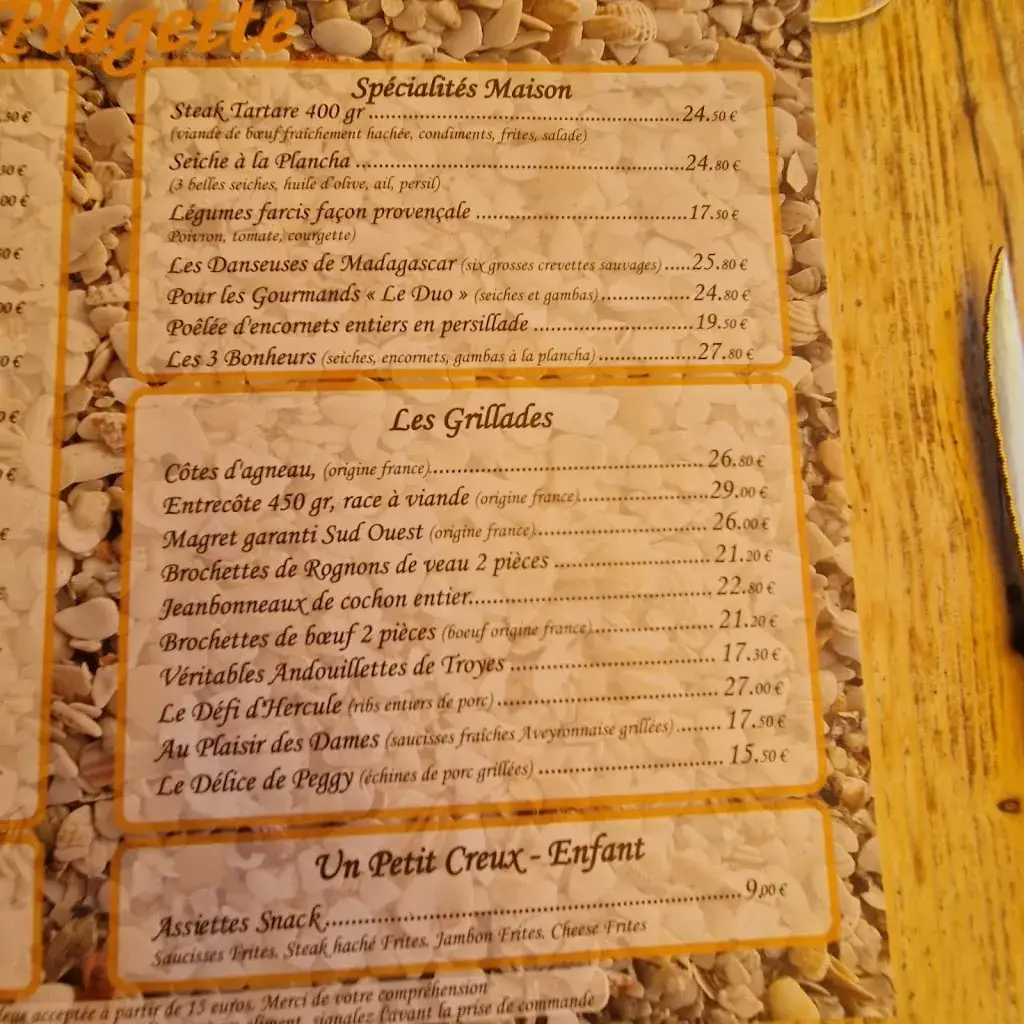 Plagette
Spécialités Maison
Steak Tartare 400 gr.....24.50 €
(viande de bœuf fraîchement hachée, condiments, frites, salade)
Seiche à la Plancha.....24.80 €
(3 belles seiches, huile d'olive, ail, persil)
Légumes farcis façon provençale.....17.50 €
Poivron, tomate, courgette)
Les Danseuses de Madagascar (six grosses crevettes sauvages).....25.80 €
Pour les Gourmands « Le Duo » (seiches et gambas).....24.80 €
Poêlée d'encornets entiers en persillade.....19.50 €
Les 3 Bonheurs (seiches, encornets, gambas à la plancha).....27.80 €
Les Grillades
Côtes d'agneau, (origine france).....26.80 €
Entrecôte 450 gr, race à viande (origine france).....29.00 €
Magret garanti Sud Ouest (origine france).....26.00 €
Brochettes de Rognons de veau 2 pièces.....21.20 €
Jeanbonneaux de cochon entier.....22.80 €
Brochettes de bœuf 2 pièces (boeuf origine france).....21.20 €
Véritables Andouillettes de Troyes.....17.30 €
Le Défi d'Hercule (ribs entiers de porc).....27.00 €
Au Plaisir des Dames (saucisses fraîches Aveyronnaise grillées).....17.50 €
Le Délice de Peggy (échines de porc grillées).....15.50 €
Un Petit Creux - Enfant
Assiettes Snack.....9,00 €
Saucisses Frites, Steak haché Frites, Jambon Frites, Cheese Frites
acceptée à partir de 15 euros. Merci de votre compréhension
signalez l'avant la prise de commande